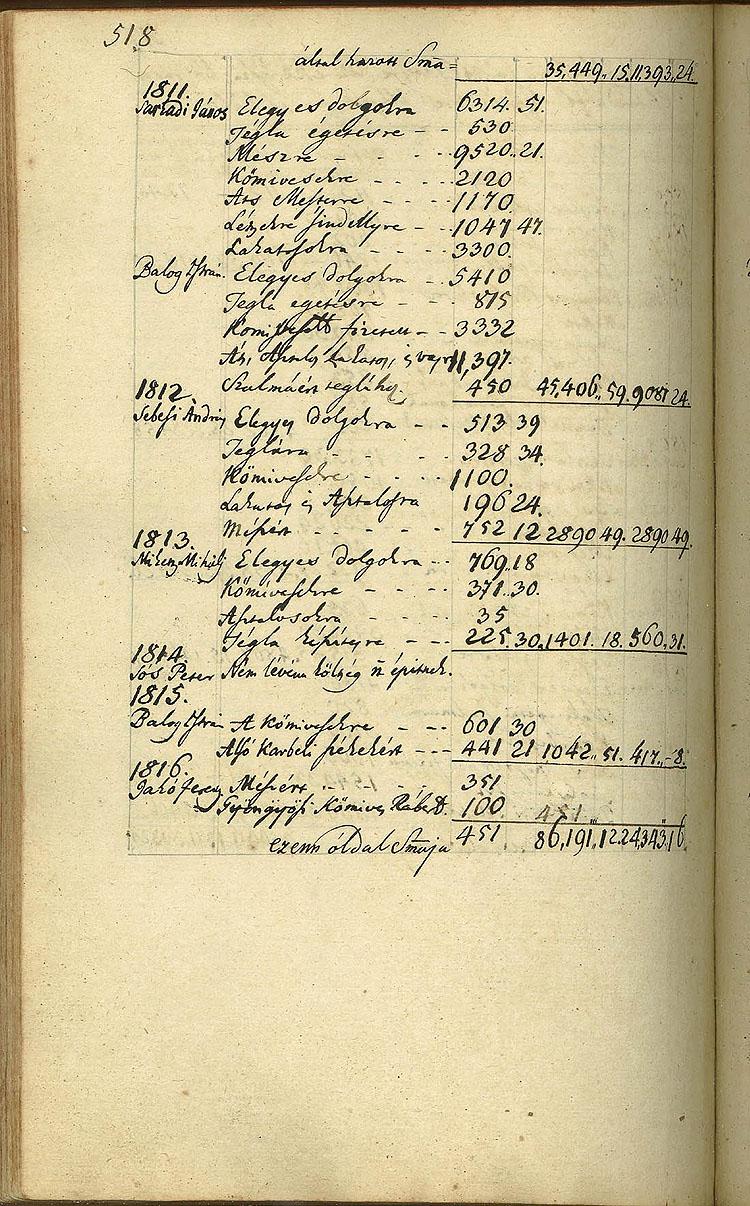 518
által hozott Sma = 35,449,, 15. 11.393, 24.
1811.
Sarkadi János Elegyes dolgokra 6314. 51.
Tégla égetésre - - 530
Mészre - - - 9520,, 21.
Kőmivesekre - - - 2120
Áts Mesterre - - - 1170
Sindellyre - - - 1047 47.
Lakatosokra - - - 3300.
Balog István Elegyes dolgokra - - 5410
Tégla egetésre - - 875
fizetett - - 3332
11,397.
Szalmáért téglához 450 45,406,, 59. 9081 24.
1812.
Sebesi András Elegyes dolgokra - - 513 39
Téglára - - - 328 34.
Kőmivesekre - - - 1100.
Lakatos és Asztalosra 196 24.
Mészért - - - - 752 12 2890 49. 2890 49.
1813.
Mihály Elegyes dolgokra - - 769,, 18
Kőmivesekre - - - 371,, 30.
Asztalosokra - - - 35
Tégla - - - 225. 30. 1401. 18. 560, 31.
1814.
Sós Péter Nem lévén költség épitnek.
1815.
Balog István A Kőmivesekre - - - 601 30
Alsó - - - 441 21 1042,, 51. 417,, -8.
1816.
Jakó Ferenc Mészért - - - 351
Gyöngyösi Kőmives 100 451
ezenn óldal Smája 451 86,191,, 12. 24,343, 16